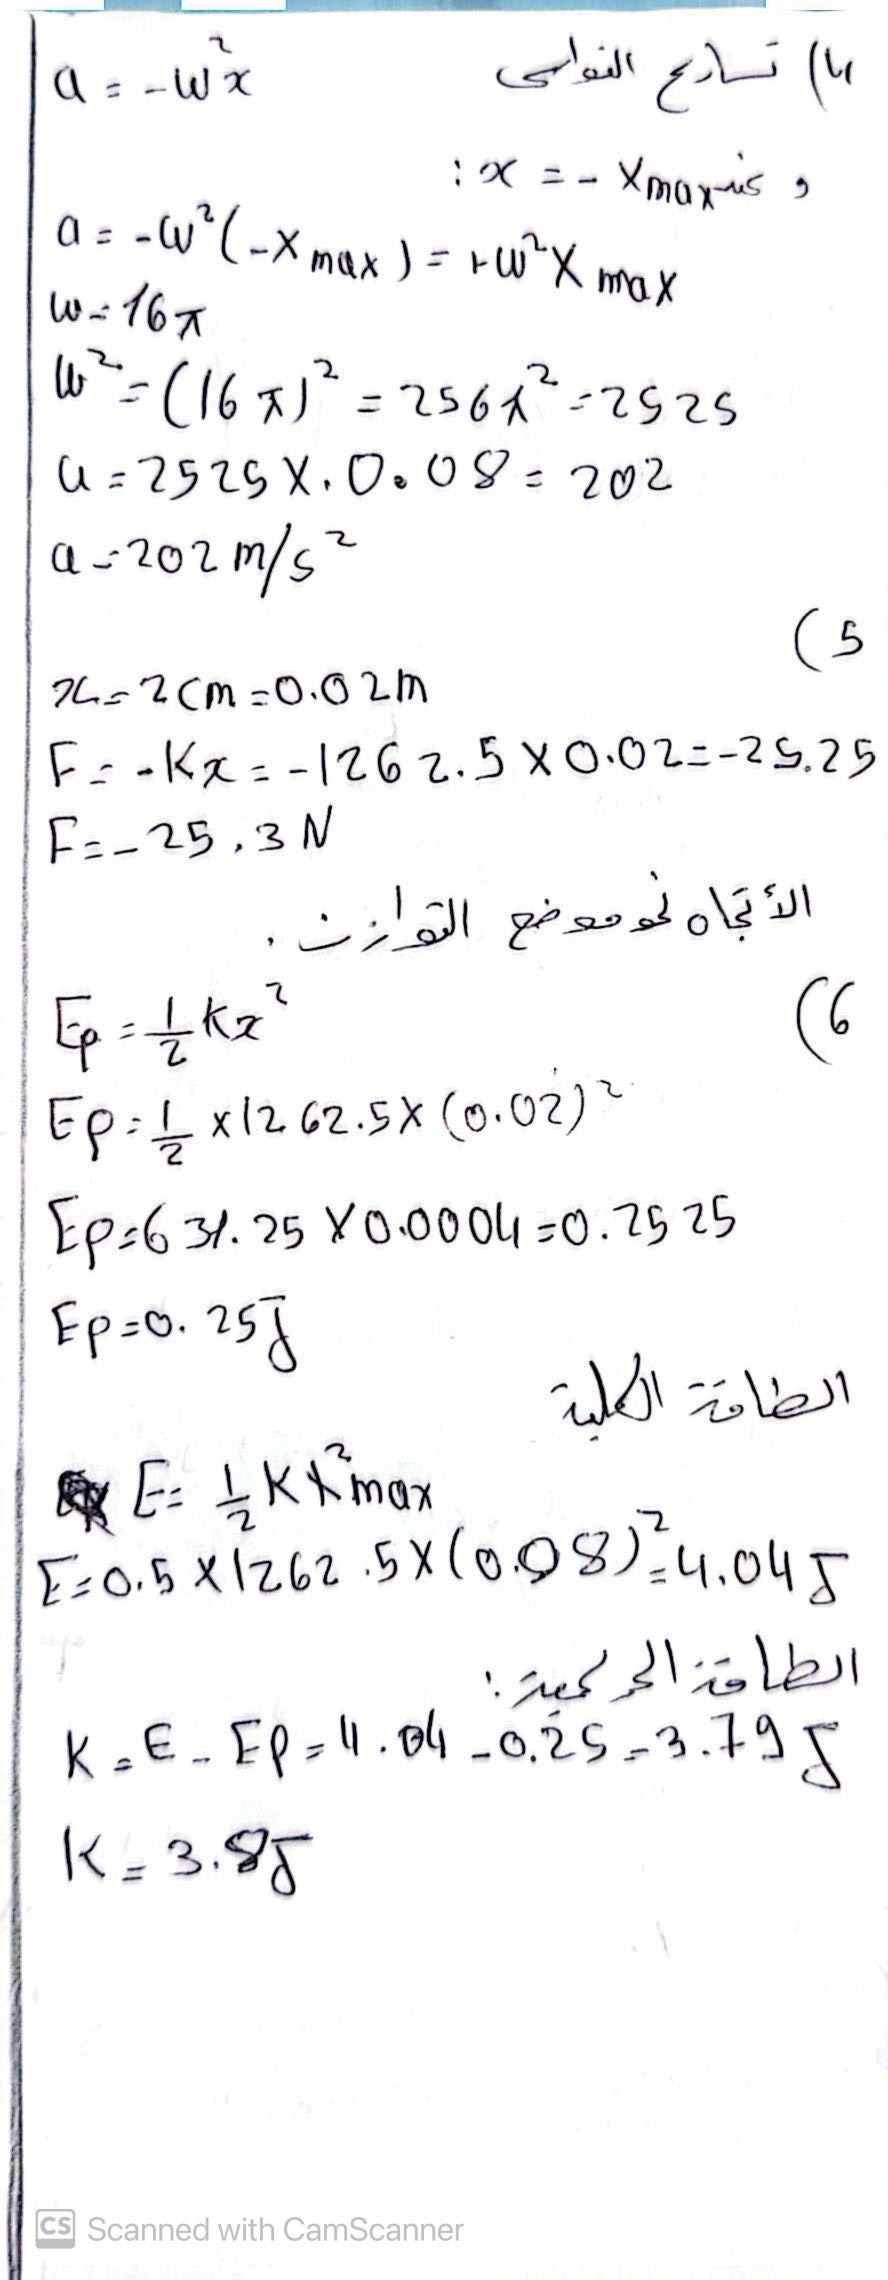 4) تسارع النواس a = -ω²x
و عند x = - Xmax :
a = -ω²(-Xmax) = +ω²Xmax
ω = 16π
ω² = (16π)² = 256π² = 2525
a = 2525 X. 0.08 = 202
a = 202 m/s²
5)
x = 2cm = 0.02m
F = -Kx = -1262.5 X 0.02 = -25.25
F = -25.3 N
الأتجاه نحو موضع التوازن.
6) Ep = 1/2 kx²
Ep = 1/2 x 1262.5 X (0.02)²
Ep = 631.25 X 0.0004 = 0.2525
Ep = 0.25J
الطاقة الكلية
E = 1/2 K X²max
E = 0.5 X 1262.5 X (0.08)² = 4.04J
الطاقة الحركية :
K = E - Ep = 4.04 - 0.25 = 3.79J
K = 3.8J
CS Scanned with CamScanner